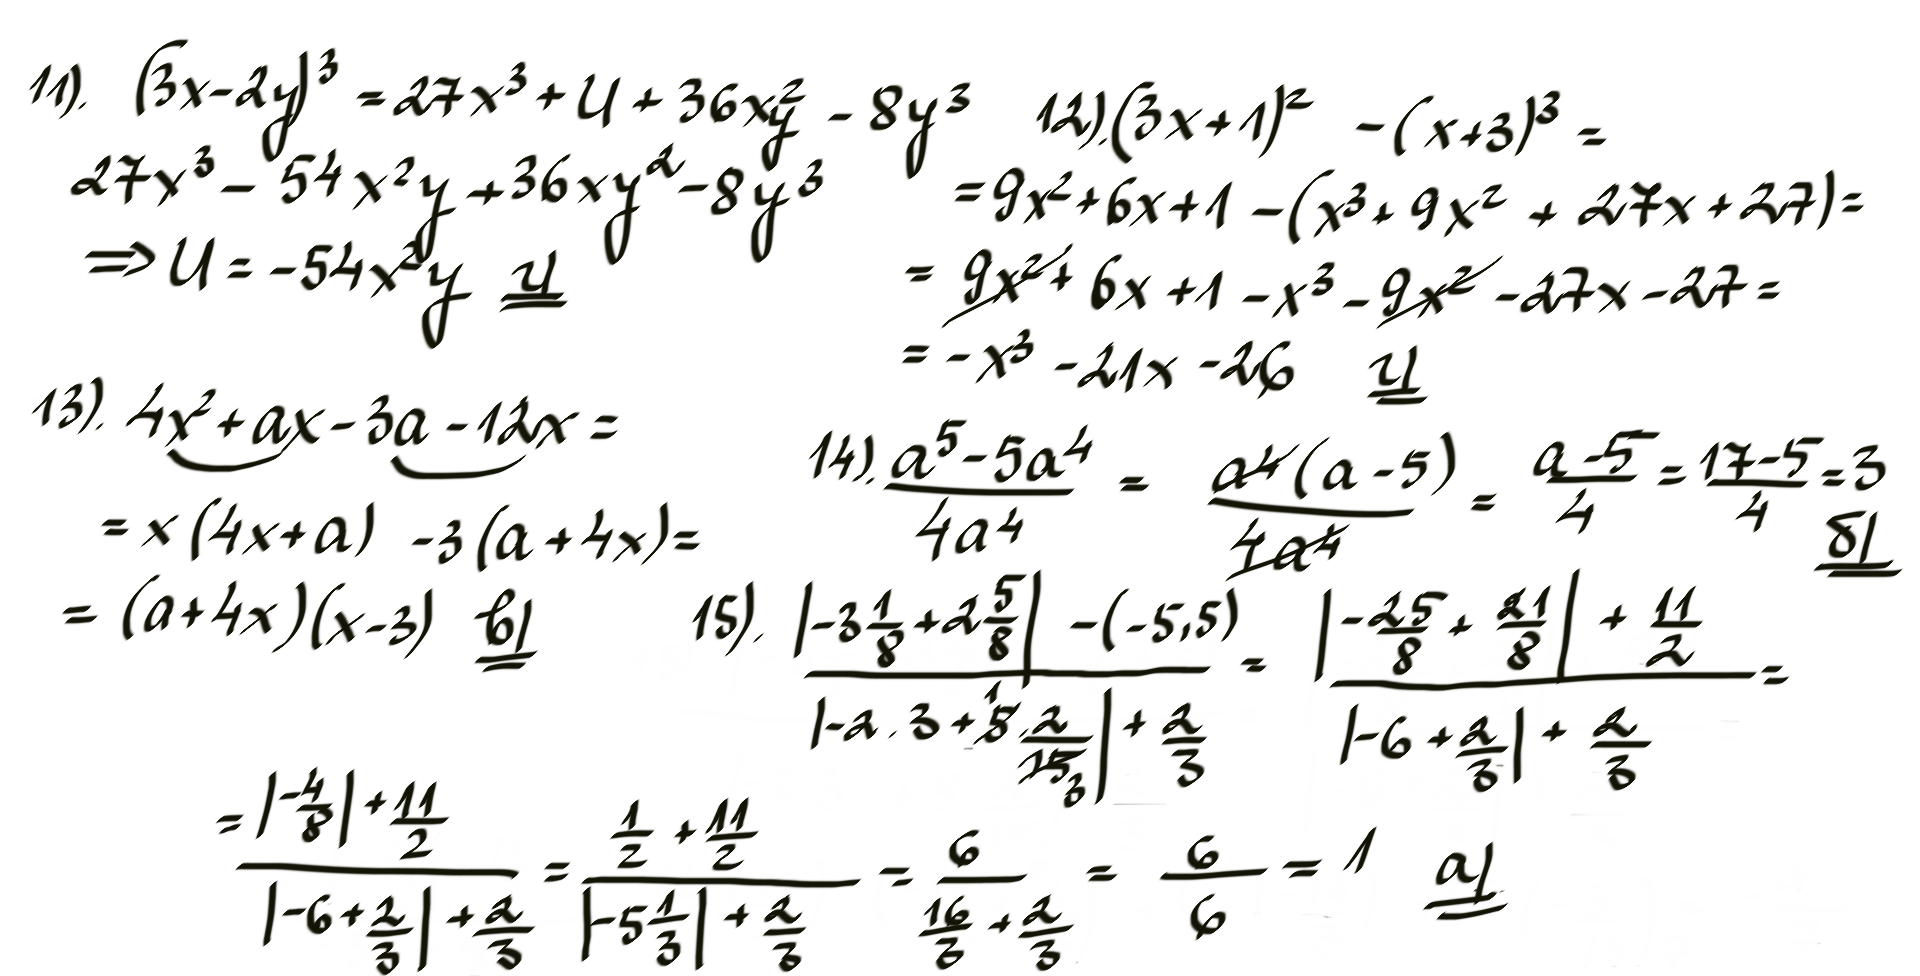 11). (3x-2y)³ = 27x³ + U + 36xy² - 8y³
27x³ - 54x²y + 36xy² - 8y³
⇒ U = -54x²y и
12). (3x+1)² - (x+3)³ =
= 9x² + 6x + 1 - (x³ + 9x² + 27x + 27) =
= 9x² + 6x + 1 - x³ - 9x² - 27x - 27 =
= -x³ - 21x - 26 и
13). 4x² + ax - 3a - 12x =
= x(4x+a) - 3(a+4x) =
= (a+4x)(x-3) в)
14). (a⁵-5a⁴)/(4a⁴) = (a⁴(a-5))/(4a⁴) = (a-5)/4 = (17-5)/4 = 3 б)
15). (|-3 1/8 + 2 5/8| - (-5,5))/(|-2.3 + 5.2/15| + 2/3) = (|-25/8 + 21/8| + 11/2)/(|-6 + 2/3| + 2/3) =
= (|-4/8| + 11/2)/(|-6 + 2/3| + 2/3) = (1/2 + 11/2)/(|-5 1/3| + 2/3) = 6/(16/3 + 2/3) = 6/6 = 1 а)